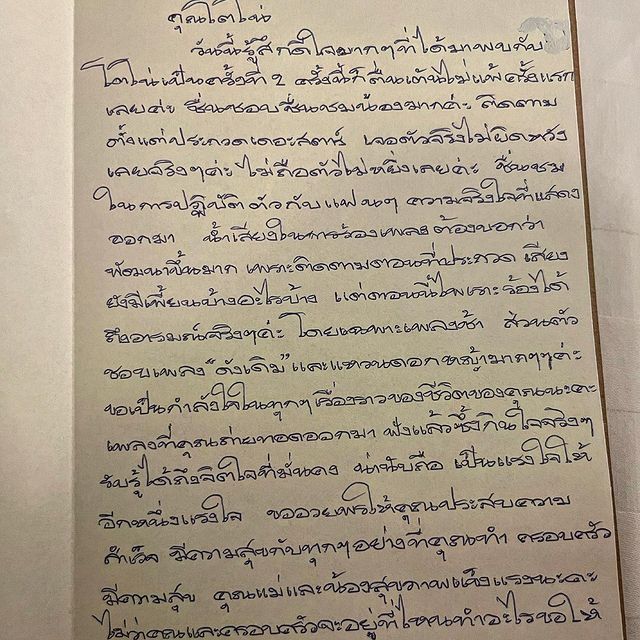 คุณโตโน่
วันนี้รู้สึกดีใจมากๆที่ได้มาพบกับ
โตโน่เป็นครั้งที่ 2 ครั้งนี้ก็ตื่นเต้นไม่แพ้ครั้งแรก
เลยค่ะ ชื่นชอบชื่นชมน้องมากค่ะ ติดตาม
ตั้งแต่ประกวดเดอะสตาร์ เจอตัวจริงไม่ผิดหวัง
เลยจริงๆค่ะ ไม่ถือตัวไม่หยิ่งเลยค่ะ ชื่นชม
ในการปฏิบัติตัวกับแฟนๆ ความจริงใจที่แสดง
ออกมา น้ำเสียงในการร้องเพลงต้องบอกว่า
พัฒนาขึ้นมาก เพราะติดตามตอนที่ประกวด เสียง
ยังมีเพี้ยนบ้างอะไรบ้าง แต่ตอนนี้ไพเราะร้องได้
ถึงอารมณ์จริงๆค่ะ โดยเฉพาะเพลงช้า ส่วนตัว
ชอบเพลง "ดังเดิม" และแหวนดอกหญ้ามากๆๆค่ะ
ขอเป็นกำลังใจในทุกๆเรื่องราวของชีวิตของคุณนะคะ
เพลงที่คุณถ่ายทอดออกมา ฟังแล้วซึ้งกินใจจริงๆ
รับรู้ได้ถึงจิตใจที่มั่นคง น่านับถือ เป็นแรงใจให้
อีกหนึ่งแรงใจ ขออวยพรให้คุณประสบความ
สำเร็จ มีความสุขกับทุกๆอย่างที่คุณทำ ครอบครัว
มีความสุข คุณแม่และน้องสุขภาพแข็งแรงนะคะ
ไม่ว่าคุณและครอบครัวจะอยู่ที่ไหนทำอะไรขอให้